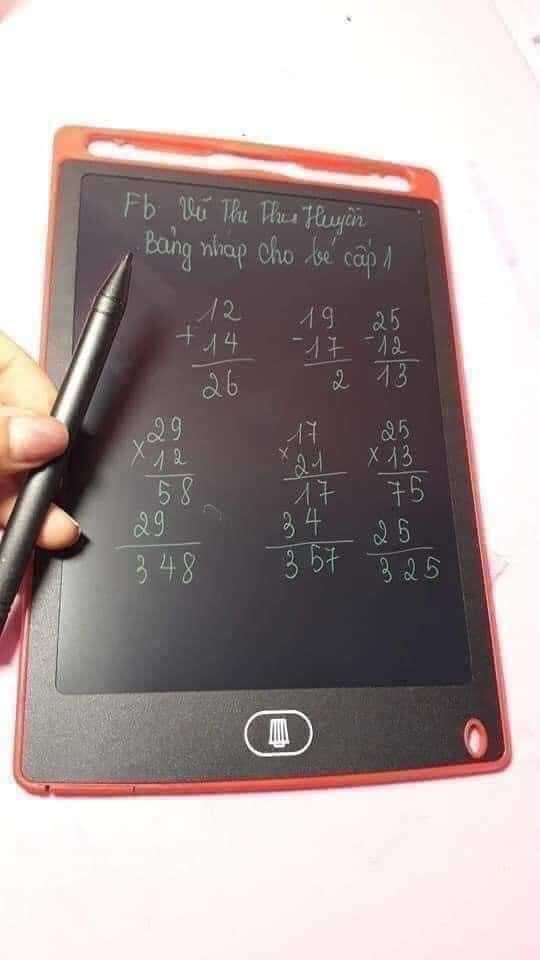 Fb Vũ Thị Thu Huyền
Bảng nháp cho bé cấp 1
12
+ 14
26
19
- 17
2
25
- 12
13
29
x 12
58
29
348
17
x 21
17
34
357
25
x 13
75
25
325